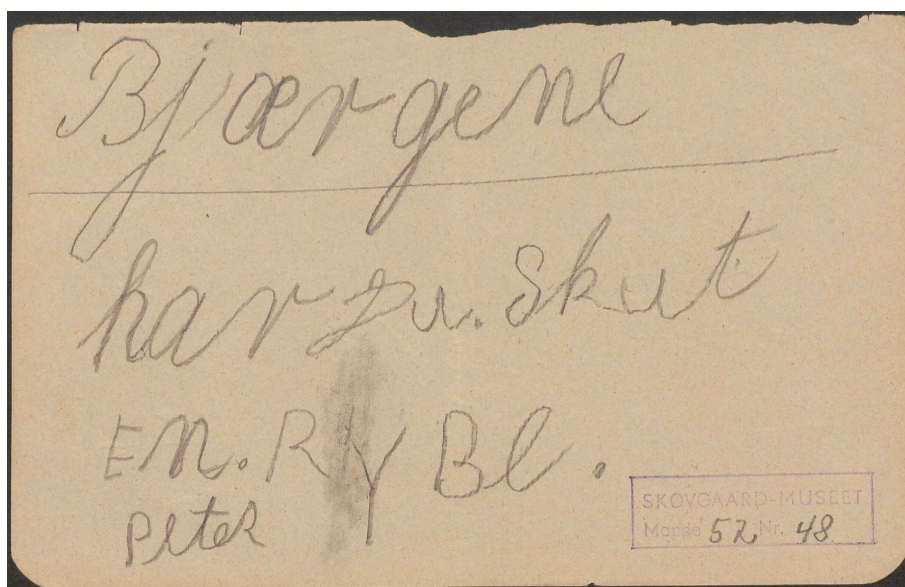 Bjærgene
har Du. Skut
En. RyBl.
Peter
SKOVGAARD-MUSEET
Mappe 52 Nr. 48